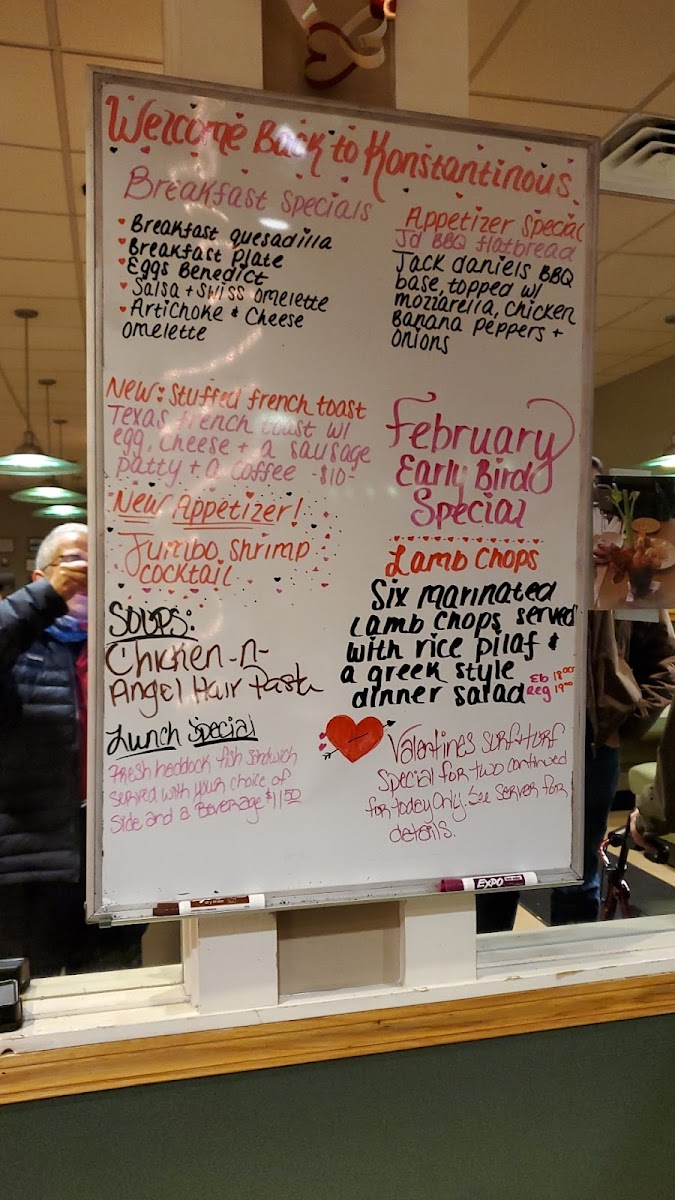 Welcome Back to Konstantinous
Breakfast Specials
Breakfast quesadilla
Breakfast Plate
Eggs Benedict
Salsa + Swiss omelette
Artichoke & Cheese
omelette
Appetizer Special
Jd BBQ flatbread
Jack daniels BBQ
base, topped w/
mozzarella, chicken
Banana peppers +
Onions
New: Stuffed french toast
Texas french toast w/
egg, cheese + a sausage
patty + a coffee -$10-
New Appetizer!
Jumbo Shrimp
Cocktail
February
Early Bird
Special
Lamb Chops
Six marinated
lamb chops served
with rice pilaf &
a greek style
dinner salad
Eb 18.00
Reg 19.00
Soups:
Chicken-n-
Angel Hair Pasta
Lunch Special
Fresh haddock fish sandwich
served with your choice of
side and a Beverage $11.50
Valentines surf+turf
special for two continued
for today only. See server for
details.
EXPO